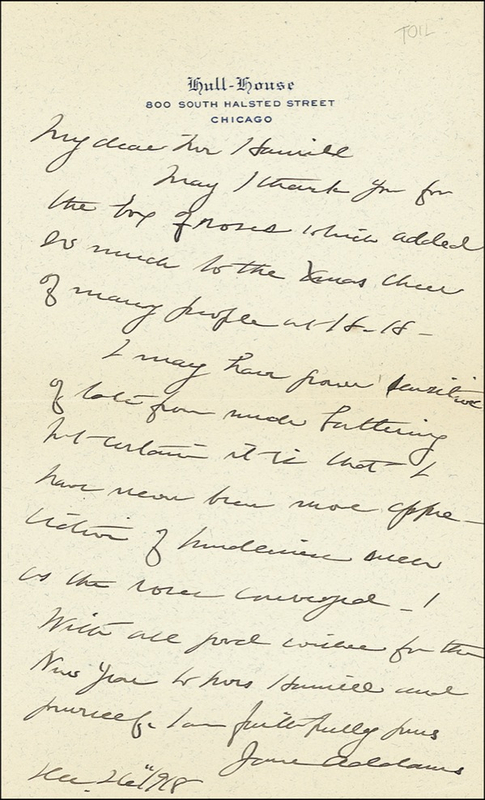 TOIL
Hull-House
800 SOUTH HALSTED STREET
CHICAGO
My dear Mr Hamill
May I thank you for
the box of roses which added
so much to the Xmas cheer
of many people at H-H-
I may have grown sensitive
of late from much battering
but certain it is that I
have never been more appre-
ciative of kindliness such
as the roses conveyed - !
With all good wishes for the
New Year to Mrs Hamill and
yourself, I am faithfully yours
Jane Addams
Dec. 26" 1918